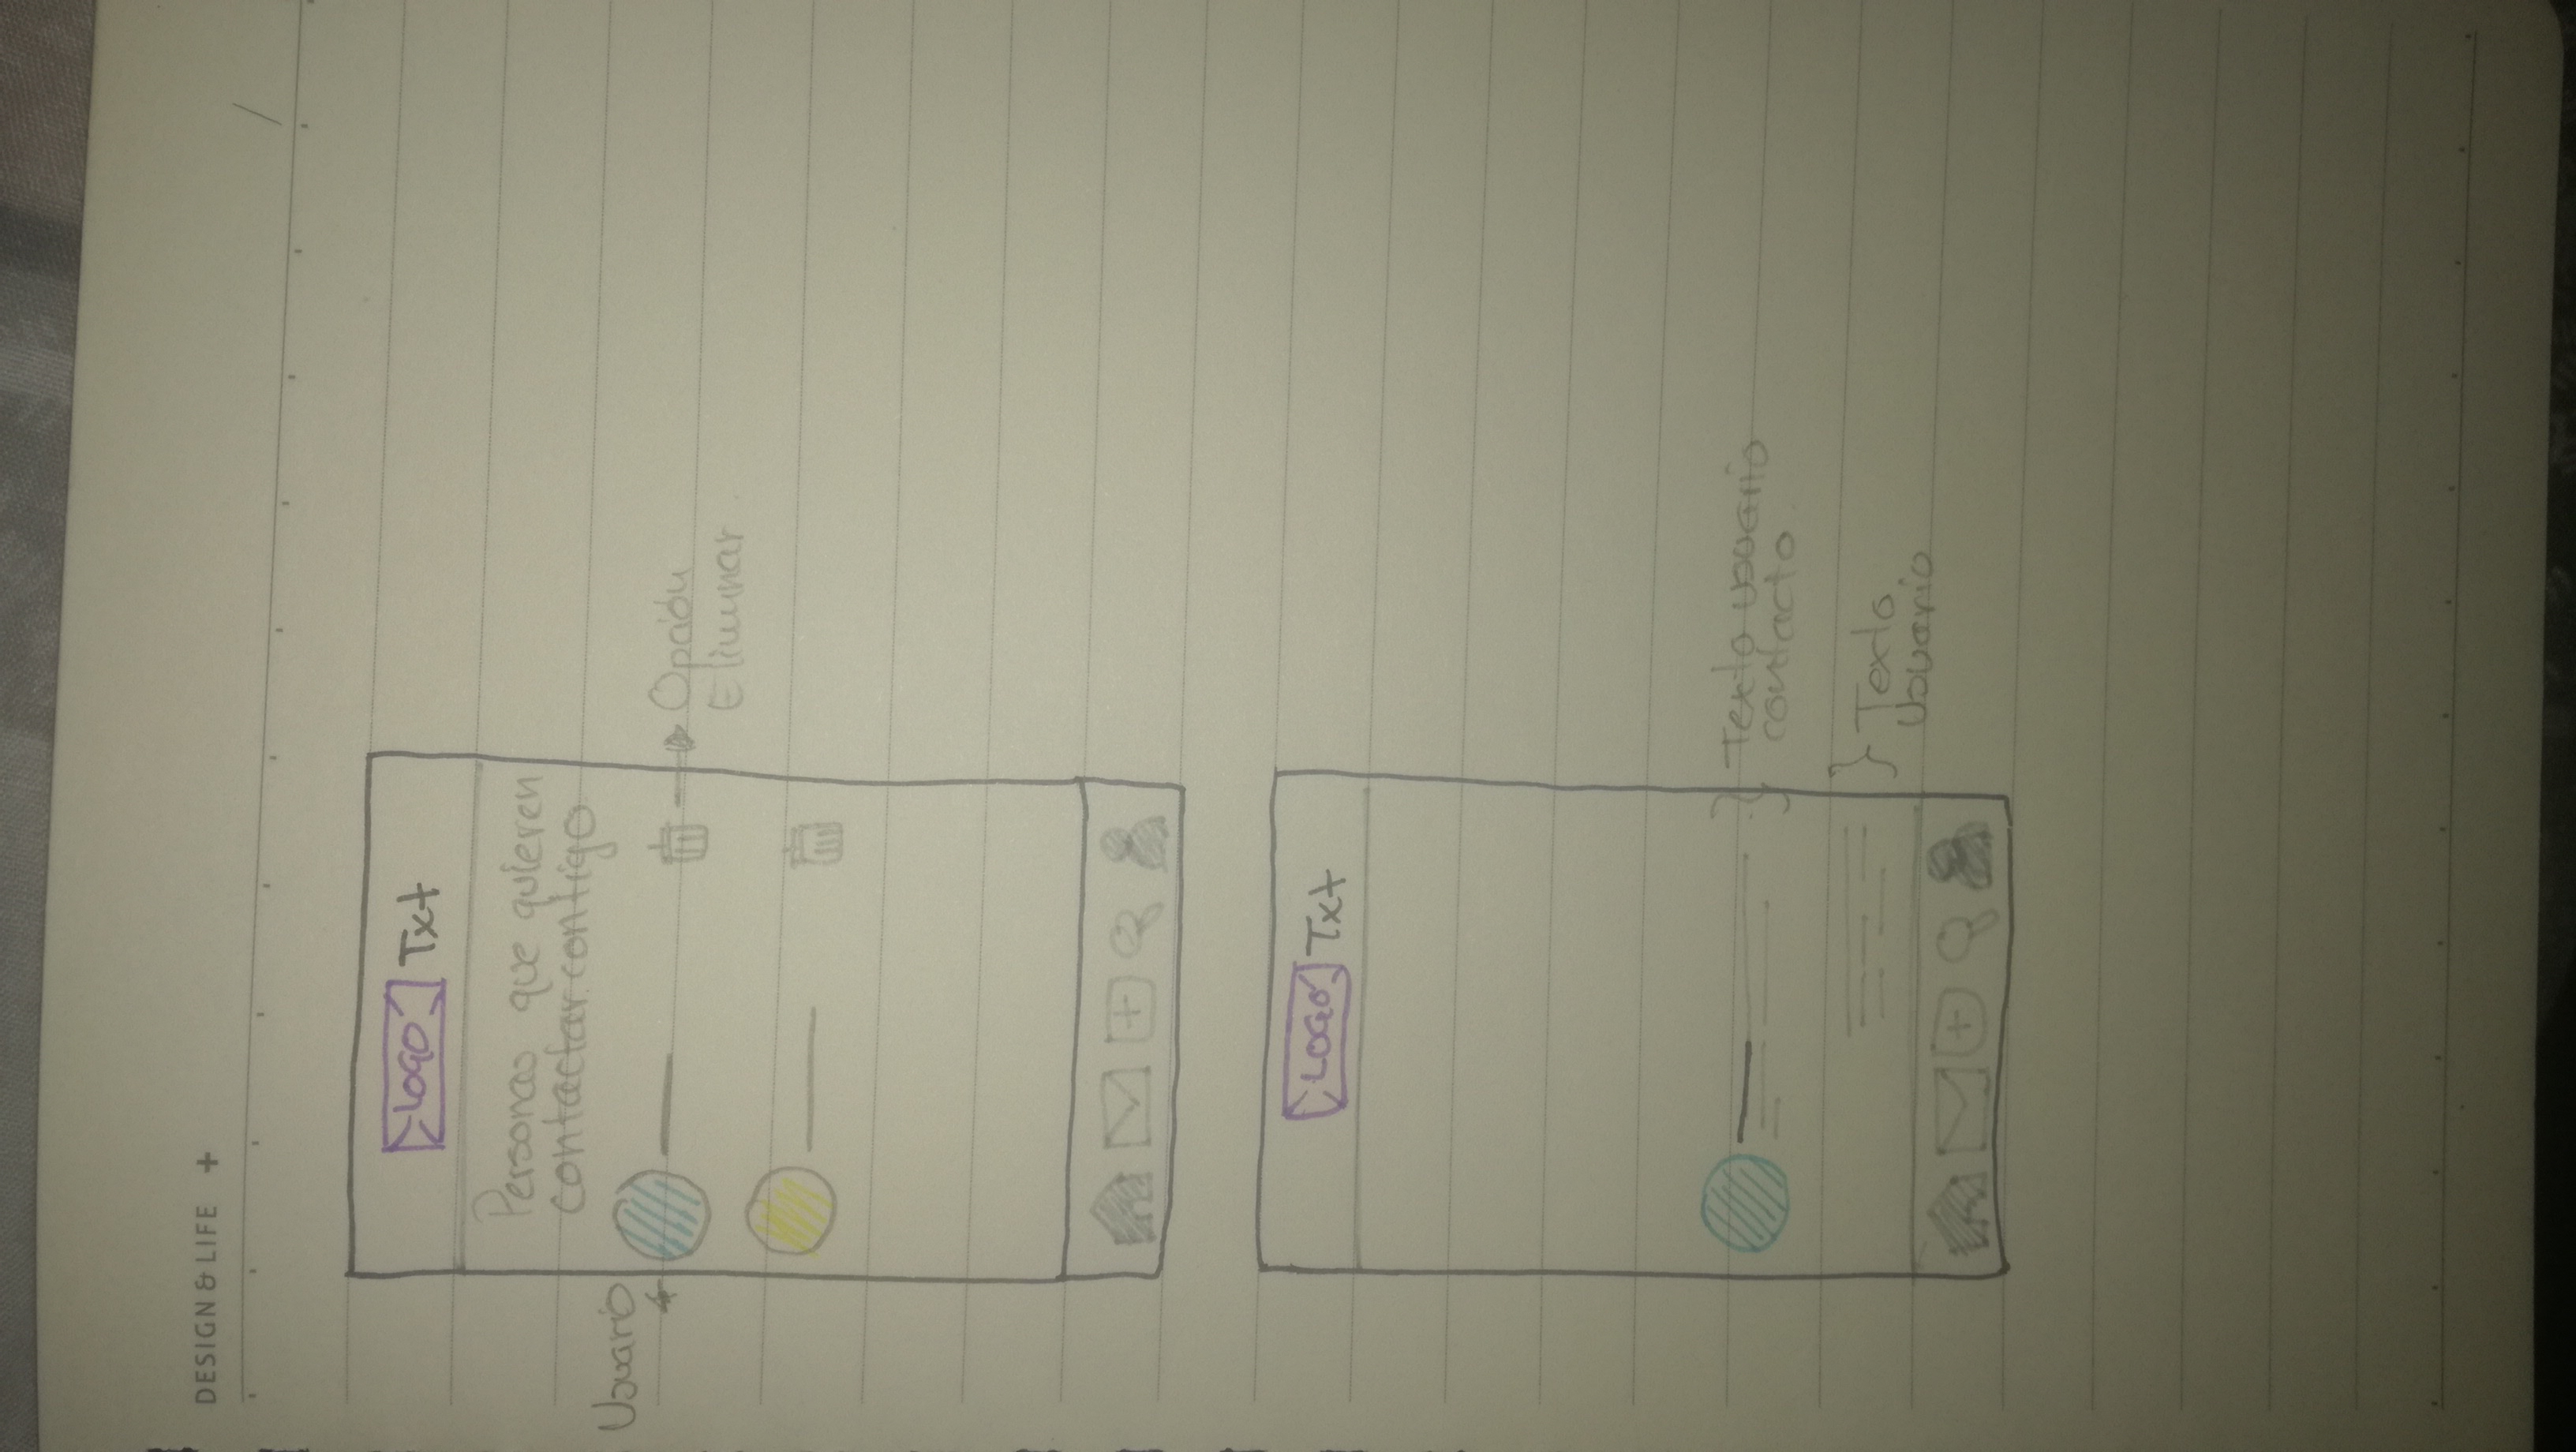 DESIGN & LIFE +
LOGO Txt
Personas que quieren
contactar contigo
Usuario
Opción
Eliminar
LOGO Txt
Texto usuario
contacto
Texto
Usuario